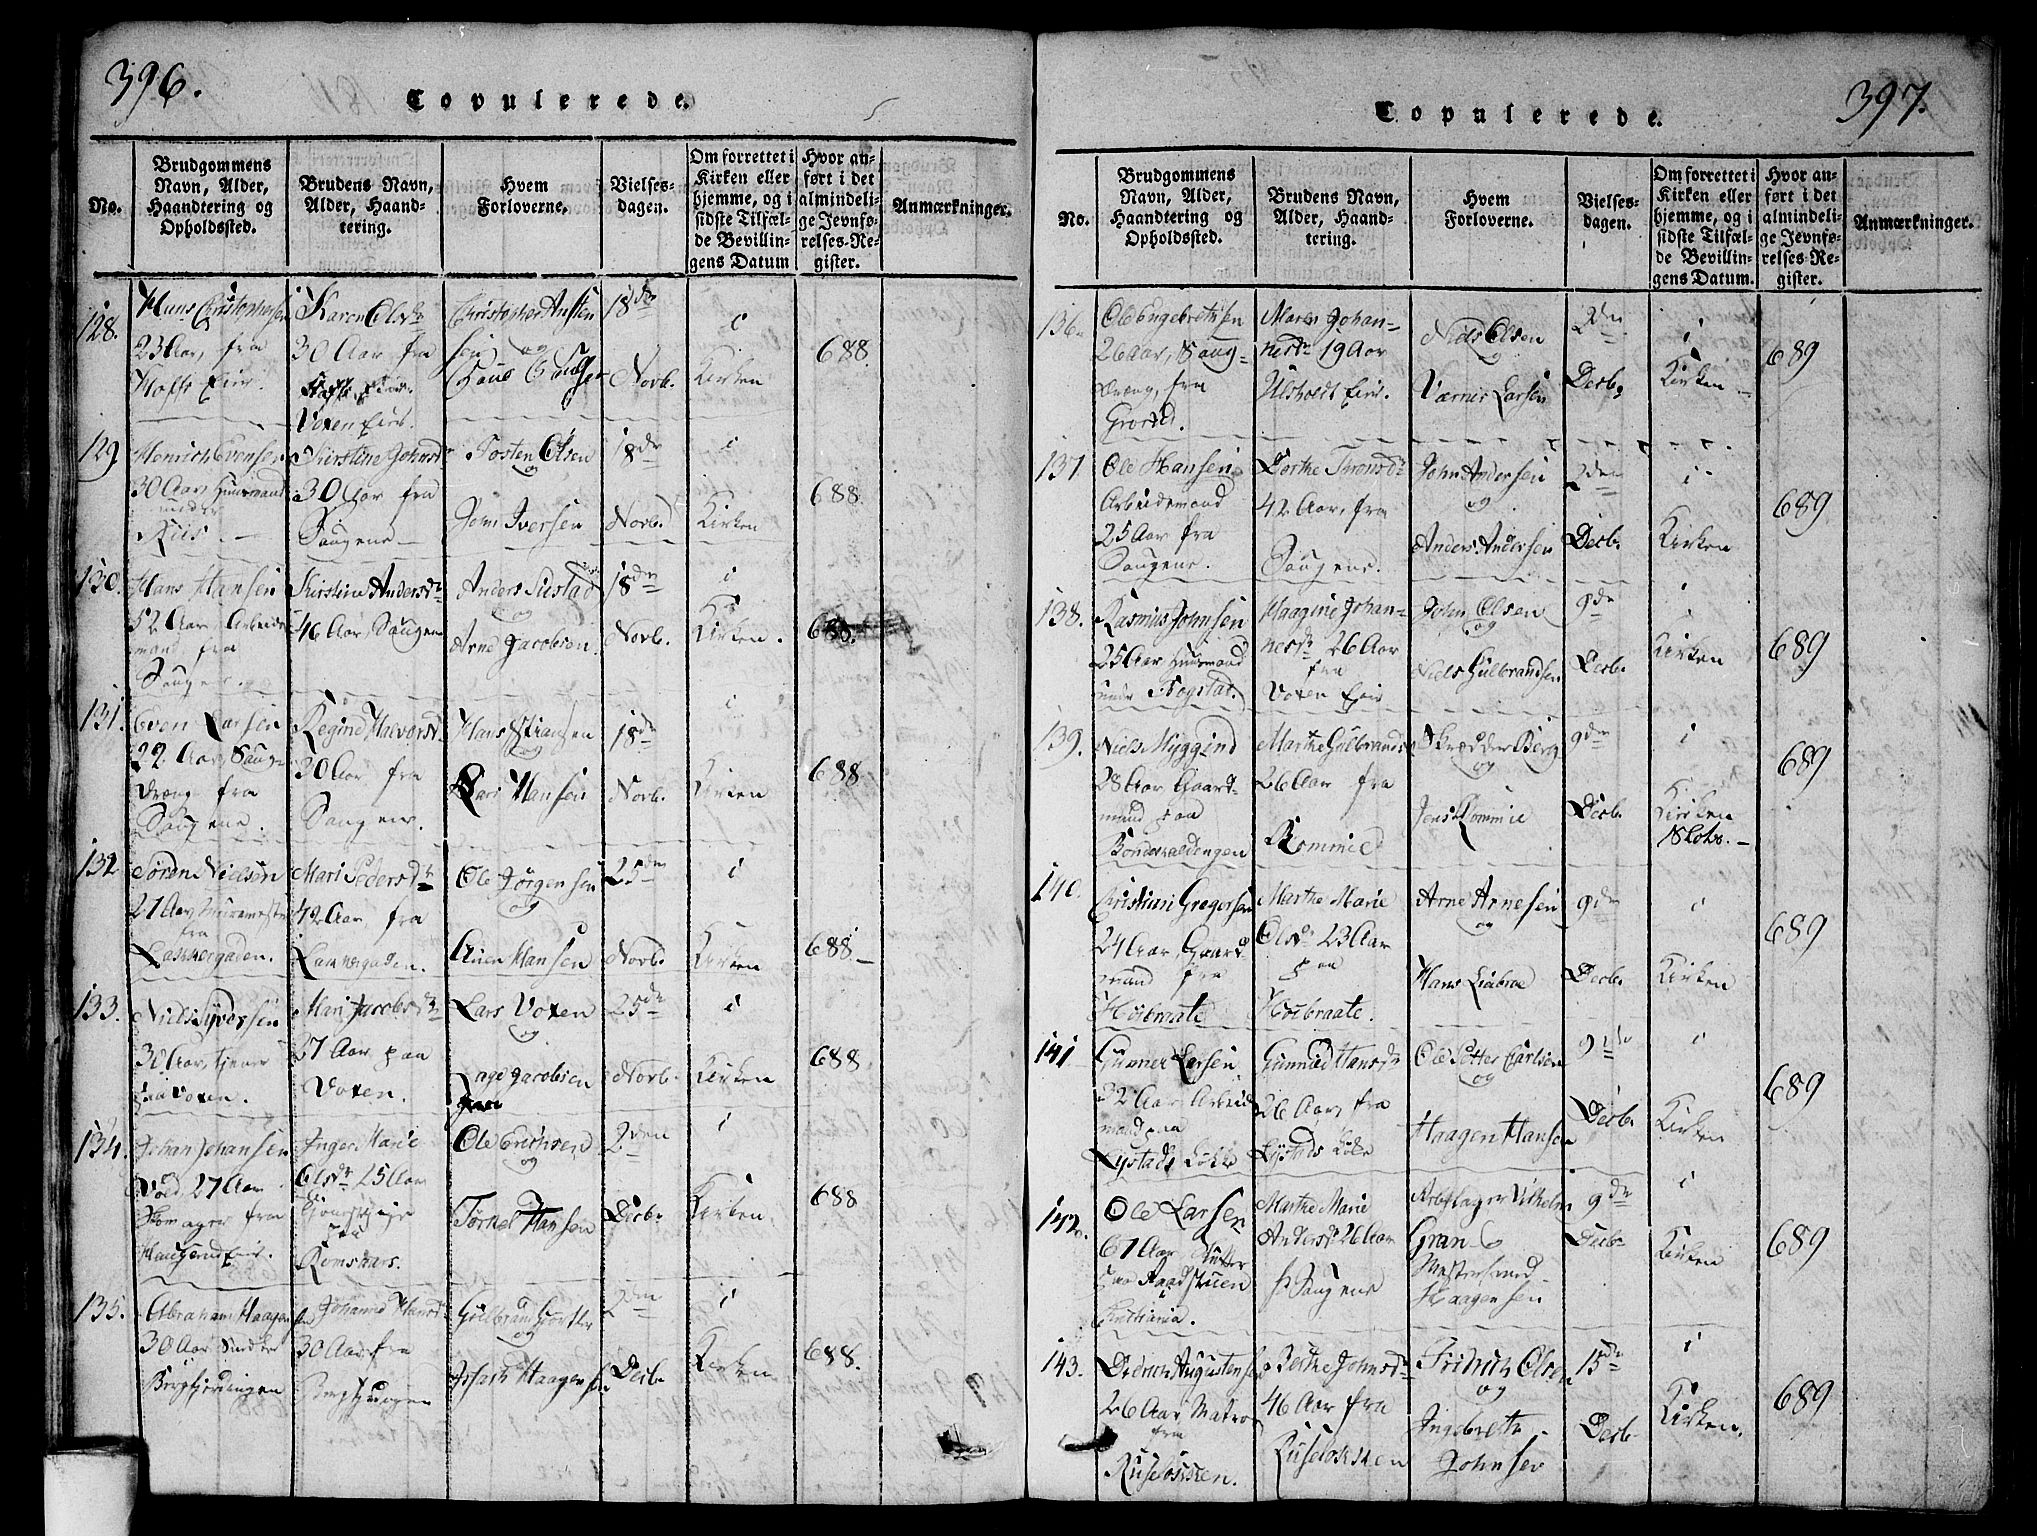 396.
Copulerede.
No.
Brudgommens Navn, Alder, Haandtering og Opholdssted.
Brudens Navn, Alder, Haandtering.
Hvem Forloverne.
Vielsesdagen.
Om forrettet i Kirken eller hjemme, og i sidste Tilfælde Bevillingens Datum
Hvor anført i det almindelige Jevnførelses-Register.
Anmærkninger.
128.
Hans Christophersen
23 Aar, fra
Karen Olsdr
30 Aar fra
Voxen Eier.
og
18de
Novb.
i
Kirken
688
129.
Henrich Evensen
30 Aar, Huusmand
under
Riis.
Kirstine Johnsdr
30 Aar fra
Saugene
Tosten Olsen
og
John Iversen
18de
Novb.
i
Kirken
688.
130.
Hans Hansen
52 Aar Arbeids
mand fra
Saugene.
Kirstine Andersdr
46 Aar, Saugene
Anders
og
Arne Jacobsen.
18de
Novb.
i
Kirken.
688.
131.
Even Larsen
22 Aar, Saug-
dreng fra
Saugene.
Regine Halvorsd
30 Aar fra
Saugene.
Hans
og
Lars Hansen
18de
Novb.
i
Kirken
688
132
Søren Nielsen
27 Aar, Muurmester
fra
Lakkergaden.
Mari Pedersdr
42 Aar, fra
Lakkergaden.
Ole Jørgensen
og
Hansen
25de
Novb.
i
Kirken
688
133.
Niels Syversen
30 Aar, tjener
paa Voxen.
Mari Jacobsdr
27 Aar paa
Voxen.
Lars Voxen
og
Jacobsen
25de
Novb.
i
Kirken
688
134.
Johan Johansen
Vold 27 Aar
Skomager fra
Haugerud Eier.
Inger Marie
Olsdr 25 Aar
paa
Romsaas.
Ole Erichsen
og
Hansen
2den
Decb.
i
Kirken.
688
135.
Abraham Haagensen
30 Aar Snedker
Bergfjerdingen
Johanne Hansd
30 Aar fra
Bergfjerdingen
Gulbrand
og
Haagensen
2den
Decb.
i
Kirken
688.
397.
Copulerede.
No.
Brudgommens Navn, Alder, Haandtering og Opholdssted.
Brudens Navn, Alder, Haandtering.
Hvem Forloverne.
Vielsesdagen.
Om forrettet i Kirken eller hjemme, og i sidste Tilfælde Bevillingens Datum.
Hvor anført i det almindelige Jevnførelses-Register.
Anmærkninger.
136.
Ole Engebretsen
26 Aar, Saug-
dreng, fra
Grorud.
Maren Johan-
nesdr 19 Aar
Ulsholdt Eier.
Niels Olsen
og
Værner Larsen
2den
Decb.
i
Kirken
689
137
Ole Hansen
Arbeidsmand
25 Aar fra
Saugene.
Dorthe Thronsdr
42 Aar, fra
Saugene.
John Andersen
og
Anders Andersen
2den
Decb.
i
Kirken
689
138.
Rasmus Johnsen
25 Aar Huusmand
under Rogstad.
Haagine Johan-
nesdr 26 Aar
fra
Voxen Eier
John Olsen
og
Niels Gulbrandsen
9de
Decb.
i
Kirken
689
139.
Niels Myggind
28 Aar Gaard-
mand paa
Marthe Gulbrandsd
26 Aar fra
Rommie
Skrædder Berg
og
Jens Rommie
9de
Decb.
i
Kirken
Slots.
689
140.
Christian Gregersen
24 Aar Gaard
mand fra
Høibraate
Marthe Marie
Olsdr 23 Aar
paa
Høibraate.
Arne Arnesen
og
Hans
9de
Decb.
i
Kirken
689
141
Gunner Larsen
32 Aar, Arbeids
mand paa
Lystads Løkke
Gunnild Hansdr
26 Aar, fra
Lystads Løkke
Ole Petter Carlsen
og
Haagen Hansen
9de
Decb.
i
Kirken
689
142.
Ole Larsen
67 Aar
paa Raadstuen
i
Christiania.
Marthe Marie
Andersdr 26 Aar
Saugene
Vilhelm
Gran
Haagensen
9de
Decb
i
Kirken
689
143.
Didrich Augustensen
26 Aar, Matros
fra
Ruseløkken.
Berthe Johnsdr
46 Aar fra
Ruseløkken
Fridrich Olsen
og
Ingebreth
Johnsen
15de
Decb
i
Kirken.
689